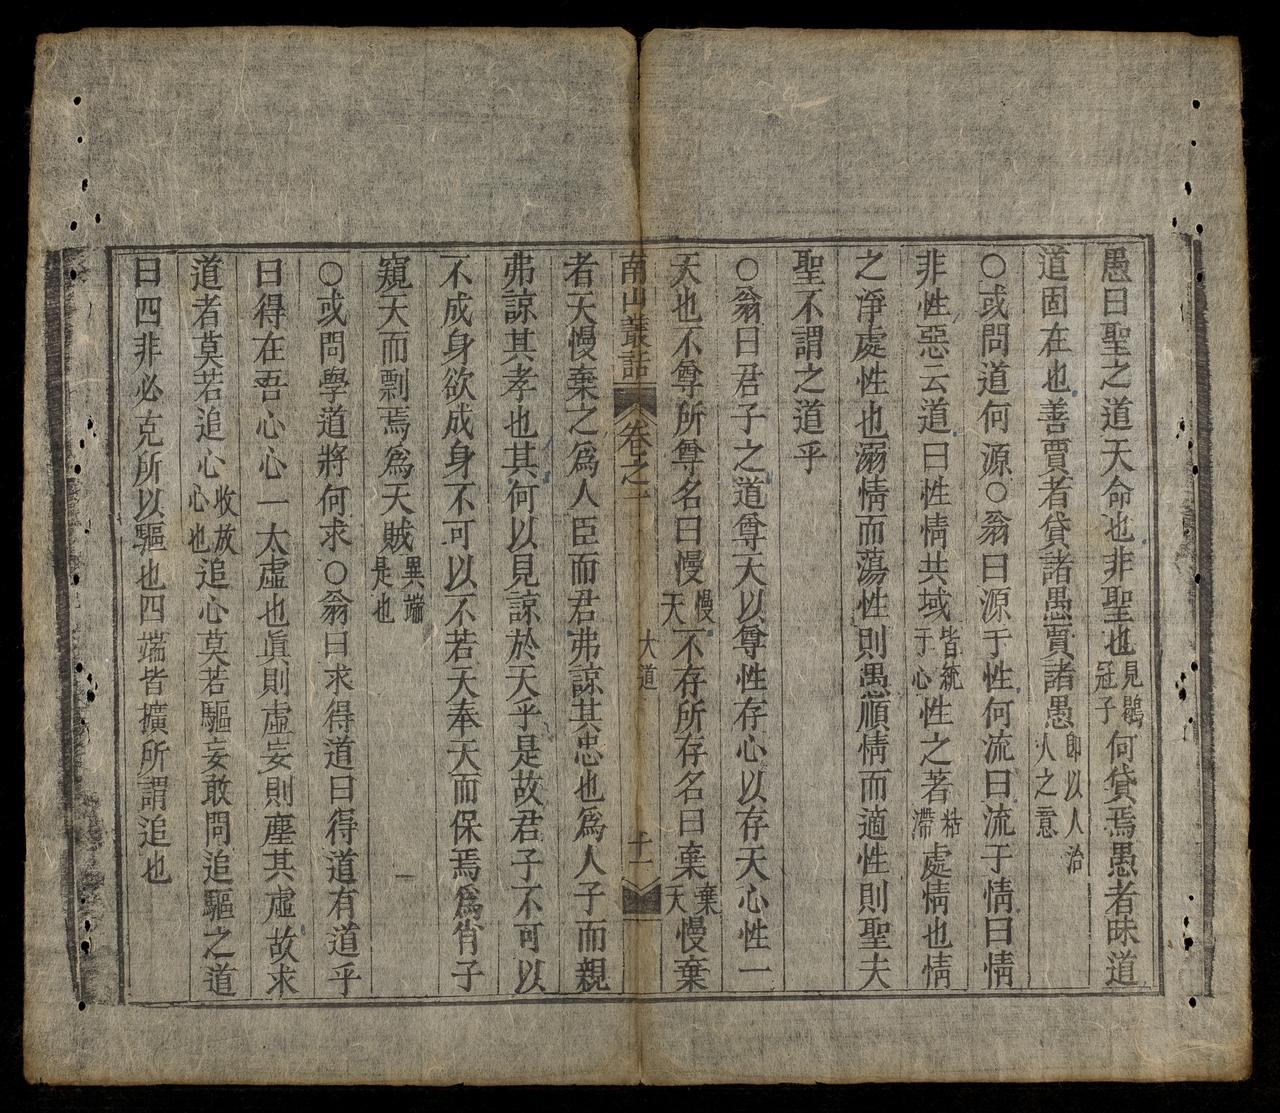 愚曰聖之道天命也非聖也見鶡冠子何貸焉愚者昧道
道固在也善賈者貸諸愚賈諸愚卽以人治人之意
○或問道何源○翁曰源于性何流曰流于情曰情
非性惡云道曰性情共域皆統于心性之著粘滯處情也情
之淨處性也溺情而蕩性則愚順情而適性則聖夫
聖不謂之道乎
○翁曰君子之道尊天以尊性存心以存天心性一
天也不尊所尊名曰慢慢天不存所存名曰棄棄天慢棄
南山叢話 卷之一 大道 十一
者天慢棄之爲人臣而君弗諒其忠也爲人子而親
弗諒其孝也其何以見諒於天乎是故君子不可以
不成身欲成身不可以不若天奉天而保焉爲肖子
窺天而剽焉爲天賊異端是也
○或問學道將何求○翁曰求得道曰得道有道乎
曰得在吾心心一太虛也眞則虛妄則塵其虛故求
道者莫若追心收放心也追心莫若驅妄敢問追驅之道
曰四非必克所以驅也四端皆擴所謂追也